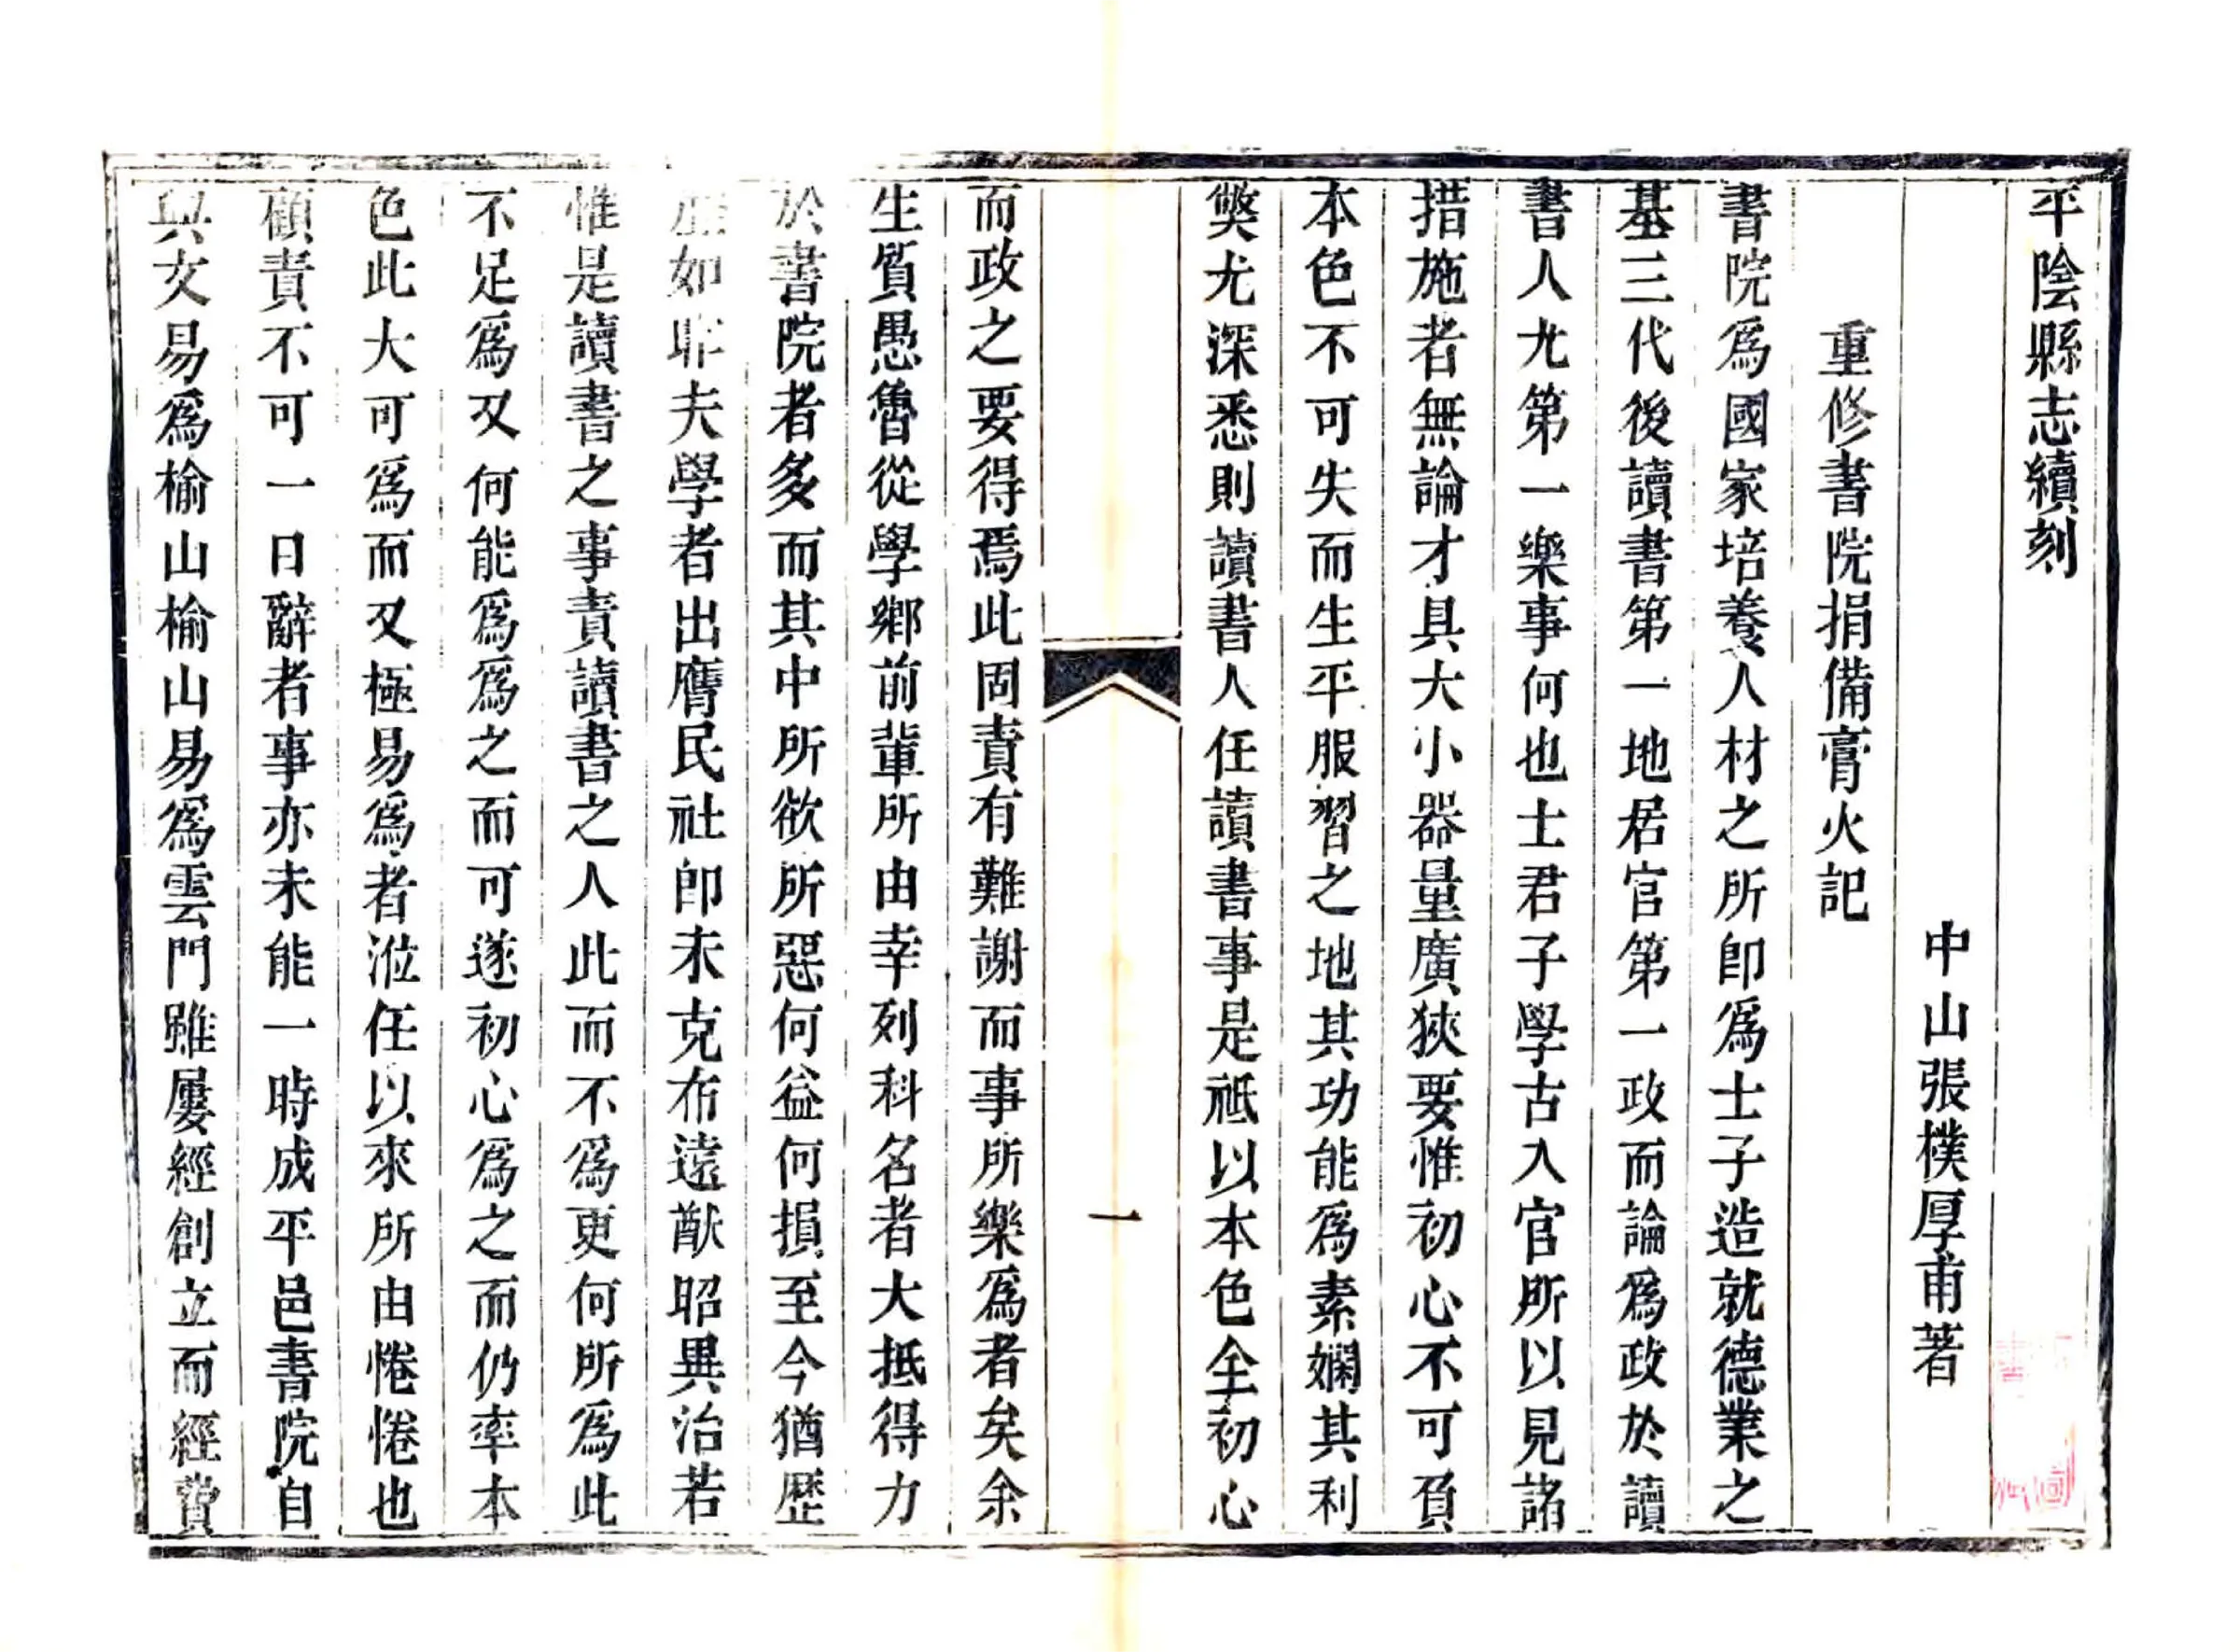 平陰縣志續刻
中山張樸厚甫著
重修書院捐備膏火記
書院爲國家培養人材之所卽爲士子造就德業之
基三代後讀書第一地居官第一政而論爲政於讀
書人尤第一樂事何也士君子學古入官所以見諸
措施者無論才具大小器量廣狹要惟初心不可負
本色不可失而生平服習之地其功能爲素嫻其利
獘尤深悉則讀書人任讀書事是祗以本色全初心
一
而政之要得焉此固責有難謝而事所樂爲者矣余
生質愚魯從學鄉前輩所由幸列科名者大抵得力
於書院者多而其中所欲所惡何益何損至今猶歷
歷如昨夫學者出膺民社卽未克布遠猷昭異治若
惟是讀書之事責讀書之人此而不爲更何所爲此
不足爲又何能爲爲之而可遂初心爲之而仍率本
色此大可爲而又極易爲者涖任以來所由惓惓也
顧責不可一日辭者事亦未能一時成平邑書院自
興文易爲榆山榆山易爲雲門雖屢經創立而經費